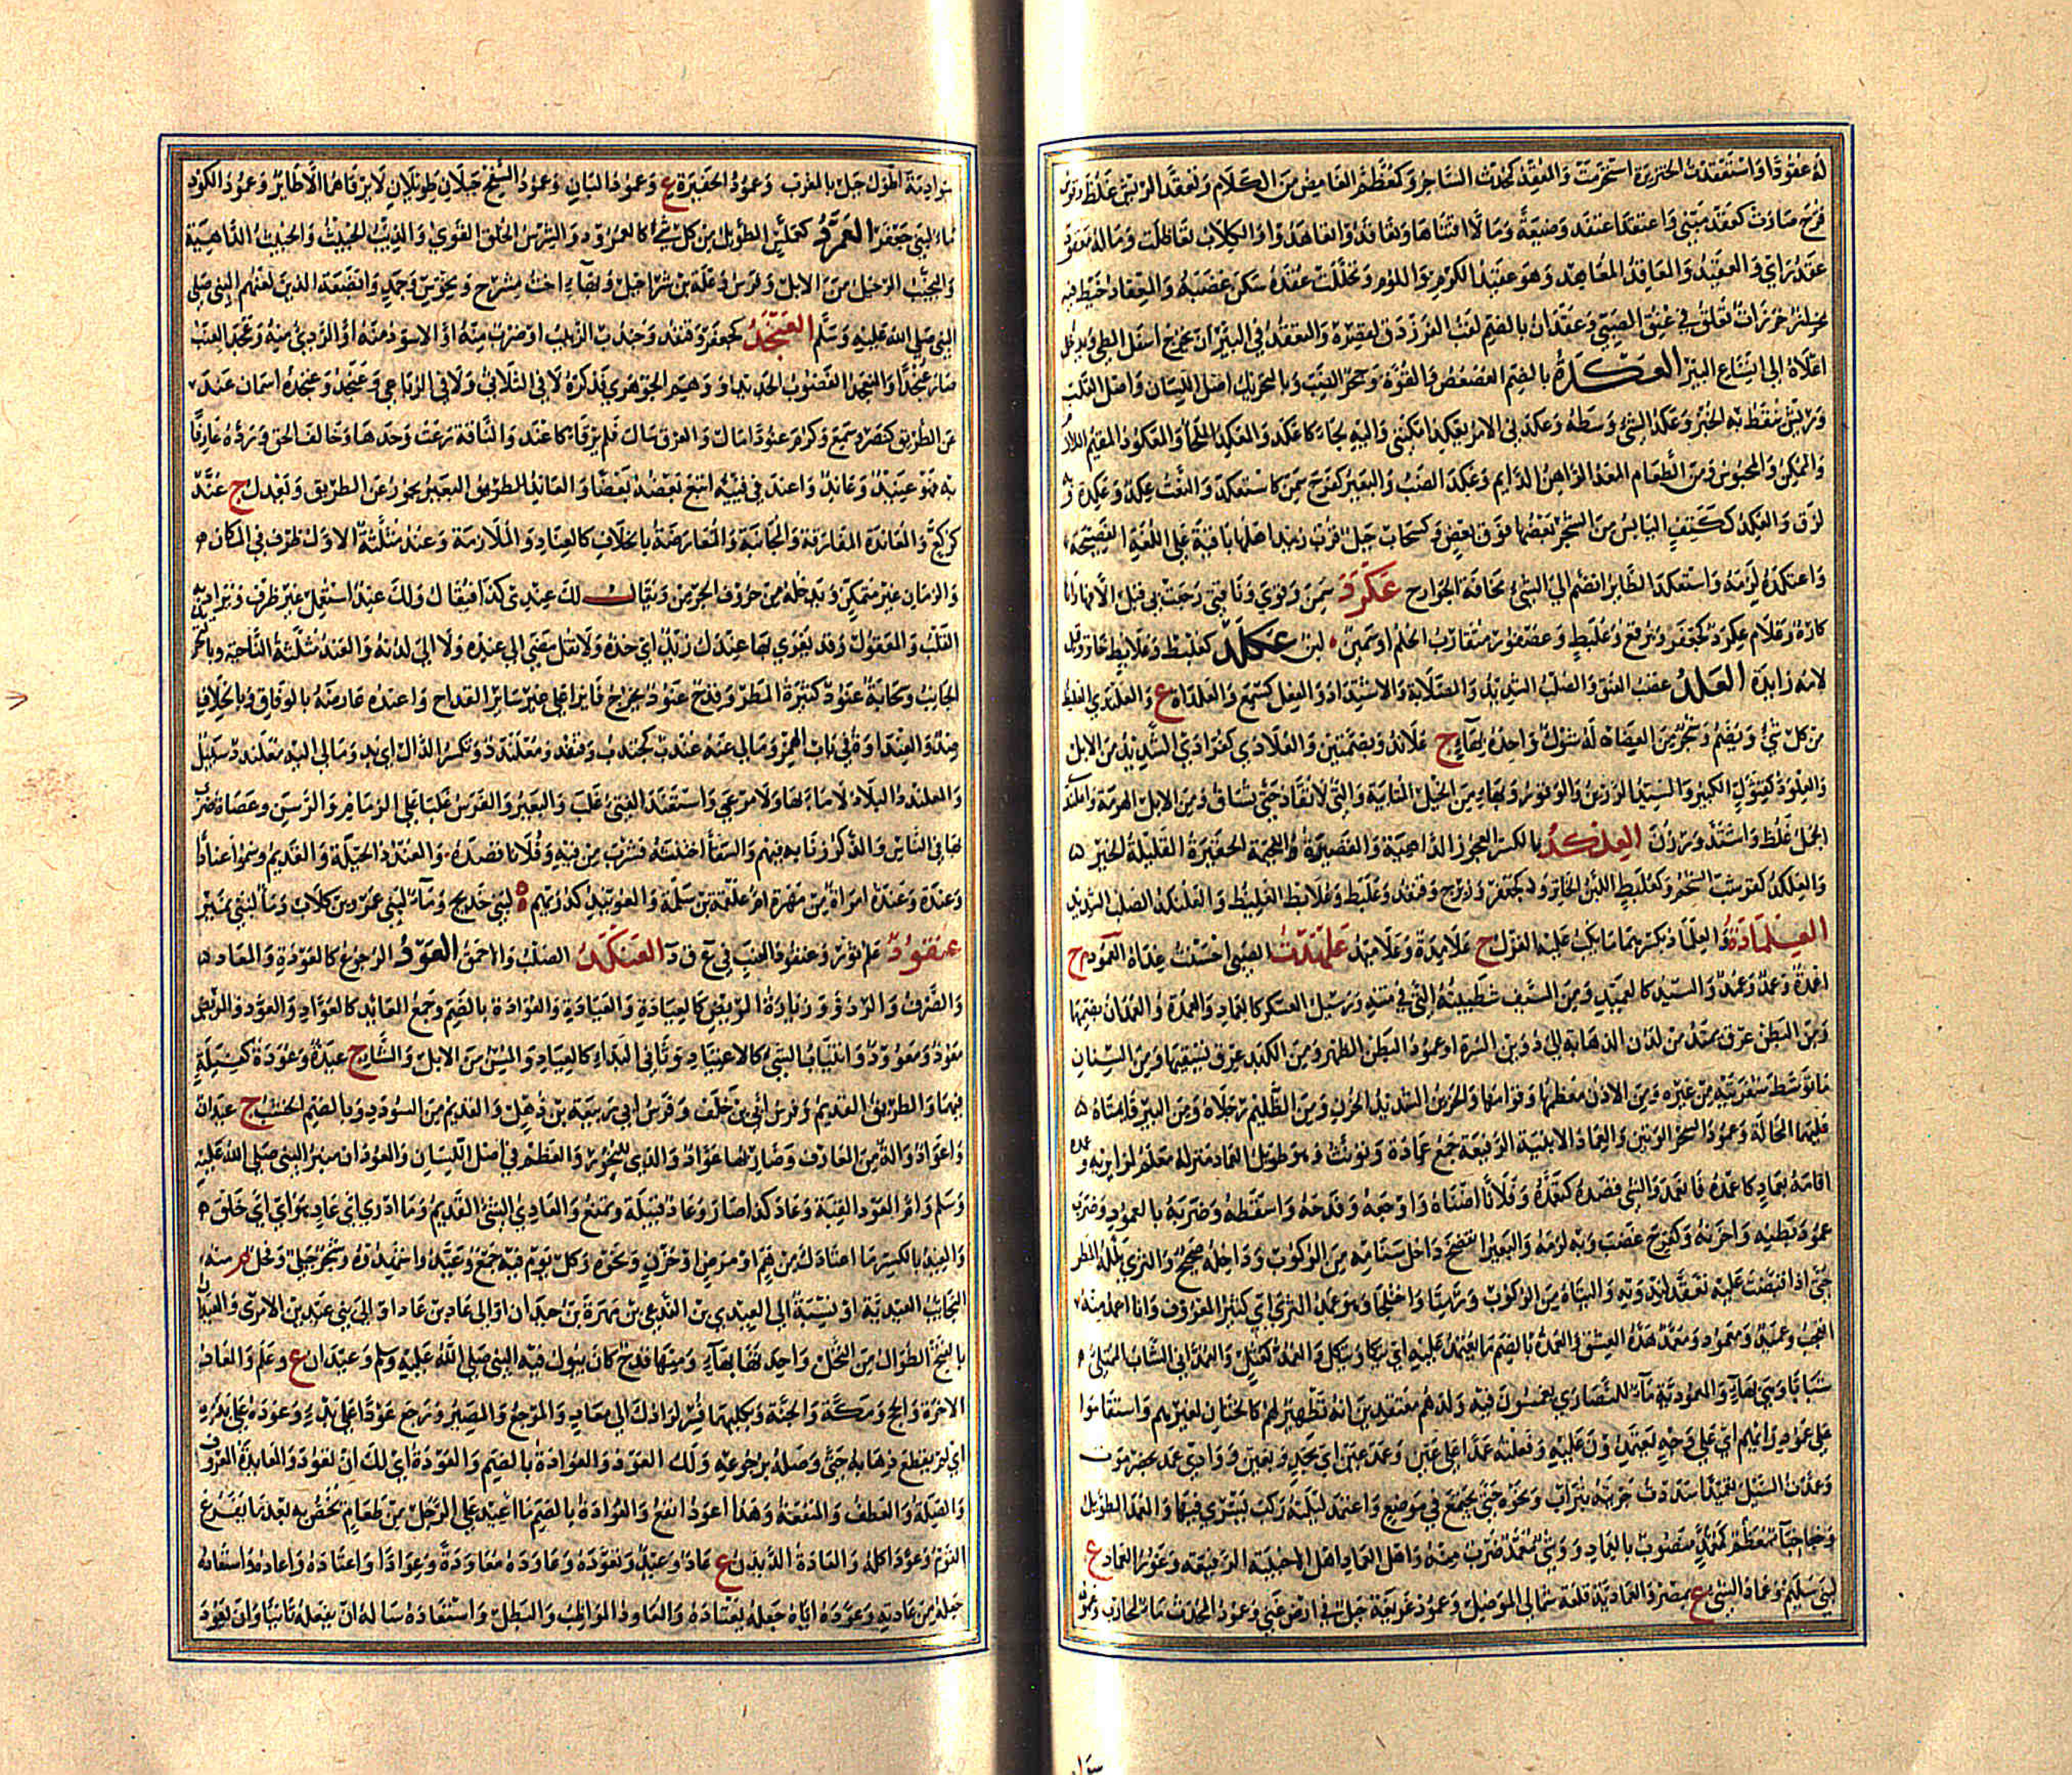 له عقودا واستعقدت الخنزيرة استحرمت والعقد كحدث الساحر وكمعظم الغامض من الكلام وتعقد الرب غلظ وقوس
قزح صارت كعقد مبني واعتقد اعتقد وضيعة ومالا اقتناها وتعاقدوا تعاهدوا والكلاب تعاظلت وماله معقود
عقد راي والعقيد والمعاقد المعاهد وهو عقيد الكرم واللوم وتحللت عقده سكن غضبه والمعقاد خيط فيه
خرزات تعلق في عنق الصبي وعقدان بالضم لقب الفرزدق لقصره والتعقد في البئر ان يخرج اسفل الطي ويدخل
اعلاه الى اتساع البئر العكدة بالضم العصعص والقوة وجحر الضب وبالتحريك اصل اللسان واصل القلب
وريش ينقط به الخبز وعكد الشيء وسطه وعكدني الامر يعكدني امكنني واليه لجا كاعكد والعكد الملجا والمعكود المقيم اللازم
والممكن والمحبوس ومن الطعام المعد الراهن الدايم وعكد الضب والبعير كفرح سمن كاستعكد والنعت عكد وعكدة و
لزق والعكد ككتف اليابس من الشجر بعضها فوق بعض وكسحاب جبل قرب زبيد اهلها باقية على اللغة الفصيحة
واعتكده لزمه واستعكد الطائر انضم الى الشيء مخافة الجوارح عكرد سمن وقوي وناقتي رجعت بي قبل الافها
كارة وغلام عكرد كجعفر وبرقع وعلبط وعصفور متقارب الحلم او سمين لبن عكلد كعلبط وعلابط خاثر وقيل
لامه زايدة العلد عصب العنق والصلب الشديد والصلابة والاشتداد والفعل كسمع والعلداة ع والعلندى الغليظ
من كل شيء ويضم وشجر من العضاه له شوك واحدته بهاء ج علاند وبضمتين والعلادى كفرادى الشديد من الابل
والعلود كقثول الكبير والسيد الرزين والوقور وبهاء من الخيل المتابية والتي لا تنقاد حتى تساق ومن الابل الهرمة واعلند
الجمل غلظ واشتد ورزن العلكد بالكسر العجوز الداهية والقصيرة اللحيمة الحقيرة القليلة الخير
والعلكد كقرشب الضخم وكعلبط اللبن الخاثر و كجعفر وزبرج وقنفذ وعلبط وعلابط الغليظ والعلنكد الصلب الشديد
العلمادة والعلماد بكسرهما ما يكب عليه الغزل ج علاميد وعلاميد علهدت الصبي احسنت غذاه العمود م ج
اعمدة وعمد وعمد والسيد كالعميد ومن السيف شطيبته التي في متنه ورئيس العسكر كالعماد والعمدة والعمدان بضمهما
ومن البطن عرق يمتد من لدن الرهابة الى دوين السرة او عمود البطن الظهر ومن الكبد عرق يسقيها ومن السنان
ما توسط شفرتيه من غيره ومن الاذن معظمها وقوامها والحزين الشديد الحزن ومن الظليم رجلاه ومن البير قايمتاه
عليهما المحالة وعمود السحر الوتين والعماد الابنية الرفيعة جمع عمادة ويونث وهو طويل العماد منزله معلم لزايريه وعمده
اقامه بعماد كاعمده فانعمد والشيء قصده كتعمده وفلانا اضناه واوجعه وفدحه واسقطه وضربه بالعمود وضرب
عمود بطنه واحزنه وكفرح غضب وبه لزمه والبعير انفضخ داخل سنامه من الركوب وداخله صحيح والثرى بلله المطر
حتى اذا قبضت عليه تعقد لندوته والبتاه من الركوب ورمتا واختلجا وهو عمد الثرى اي كثير المعروف وانا اعمد منه
اتعجب وعميد ومعمود ومعمد هده العشق والعمدة بالضم ما يعتمد عليه اي يتكا ويتكل والعمد كعتل والعمداني الشاب الممتلئ
شبابا وهي بهاء والمعمودية ماء للنصارى يغمسون فيه ولدهم معتقدين انه تطهير لهم كالختان لغيرهم واستقاموا
على عمود رايهم اي على وجه يعتمدون عليه وفعلته عمدا على عين وعمد عين اي بجد ويقين ووادي عمد بحضرموت
وعمدت السيل تعميدا سددت جريته بتراب ونحوه حتى يجتمع في موضع واعتمد ليلته ركب يسري فيها والعمد الطويل
وخباء معمد كمعظم منصوب بالعماد ووشي معمد ضرب منه واهل العماد اهل الاخبية الرفيعة وغور العماد ع
لبني سليم وعماد الشبى ع بمصر والعمادية قلعة شمالي الموصل وعمود غربفة جبل في ارض غني وعمود المحدث ماء لمحارب وعمود
سوادمة اطول جبل بالمغرب وعمود الحفيرة ع وعمود البان وعمود السفح جبلان طويلان لا يرقاهما الا طاير وعمود الكود
ماء لبني جعفر العمرد كعملس الطويل من كل شيء كالعمرود والشرس الخلق القوي والذيب الخبيث والخبيث الداهية
والنجيب الرحيل من الابل وفرس وعلة بن شراحيل وبهاء اخت مشرح ومخوس وجمد وابضعة الذين لعنهم النبي صلى
النبي صلى الله عليه وسلم العنجد كجعفر وقنفذ وجندب الزبيب او ضرب منه او الاسود منه او الردي منه وعنجد العنب
صار عنجدا والعنجد الغضوب الحديد او وهم الجوهري فذكره لا في الثلاثي ولا في الرباعي وعنجد وعنجدة اسمان عند
عن الطريق كنصر وسمع وكرم عنودا مال والعرق سال فلم يرقا كاعند والناقة رعت وحدها وخالف الحق ورده عارفا
به فهو عنيد وعاند واعند في قيئه اتبع بعضه بعضا والعاند البعير يجور عن الطريق ويعدل ج عند
كركع والمعاندة المفارقة والمجانبة والمعارضة بالخلاف كالعناد والملازمة وعند مثلثة الاول ظرف في المكان
والزمان غير متمكن ويدخله من حروف الجر من ويقال عندي كذا فيقال ولك عند استعمل غير ظرف ويراد به
القلب والمعقول وقد يغري بها عندك زيدا اي خذه ولا تقل مضى الى عنده ولا الى لدنه والعند مثلثة الناحية وبالتحريك
الجانب وسحابة عنود كثيرة المطر وقدح عنود يخرج فايزا على غير ساير القداح واعنده عارضه بالوفاق وبالخلاف
ضد والعنداوة في باب الهمز ومالي عنه عندد كجندب وقنفذ ومعلندد وتكسر الدال اي بد ومالي اليه معلندد سبيل
والمعلندد البلاد لا ماء بها ولا مرعى واستعند القيء غلب والبعير والفرس غلبا على الزمام والرسن وعصاه ضرب
بها في الناس والذكر زنى به فيهم والسقاء اختنثه فشرب من فيه وفلانا قصده والعندد الحيلة والقديم وسموا عنادا
وعندة وعندة امراة من مهرة ام علقمة بن سلمة والعويند كدريهم ة لبني خديج وماء لبني عمرو بن كلاب وماء لبني نمير
عنقود علم ثور وعنقود العنب في ع ق د العنكد الصلب والاحمق العود الرجوع كالعودة والمعاد
والصرف والرد وزيارة المريض كالعياد والعيادة والعوادة بالضم وجمع العايد كالعواد والعود والمريض
معود ومعوود وانتياب الشيء كالاعتياد وثاني البداء كالعياد والمسن من الابل والشاء ج عيدة وعودة كفيلة
فيهما والطريق القديم وفرس ابي بن خلف وفرس ابي ربيعة بن ذهل والقديم من السودد وبالضم الخشب ج عيدان
واعواد والة من المعازف وضاربها عواد والذي للبخور والعظم في اصل اللسان والعودان منبر النبي صلى الله عليه
وسلم وام العود القبة وعاد كذا صار وعاد قبيلة ويمنع والعادي الشيء القديم وما ادري اي عاد هو اي اي خلق
والعيد بالكسر ما اعتادك من هم او مرض او حزن ونحوه وكل يوم فيه جمع وعيدوا شهدوه وشجر جبلي وفحل م منه
النجائب العيدية او نسبة الى العيدي بن الندغي بن مهرة بن حيدان او الى عاد بن عاد او الى بني عيد بن الامري والعيدان
بالفتح الطوال من النخل واحدتها بهاء ومنها قدح كان يبول فيه النبي صلى الله عليه وسلم وعيدان ع وعلم والمعاد
الاخرة والحج ومكة والجنة وبكليهما فسر لرادك الى معاد والمرجع والمصير ورجع عودا على بدء وعوده على بدئه
اي لم يقطع ذهابه حتى وصله برجوعه ولك العود والعوادة بالضم والعودة اي لك ان تعود والعايدة المعروف
والصلة والعطف والمنفعة وهذا اعود انفع والعوادة بالضم ما اعيد على الرجل من طعام يخص به بعد ما يفرغ
القوم وعود اكله والعادة الديدن ج عاد وعيد وتعوده وعاوده معاودة وعوادا واعتاده واعاده واستعاده
جعله من عادته وعوده اياه جعله يعتاده والمعاود المواظب والبطل واستعاده ساله ان يفعله ثانيا وان يعود